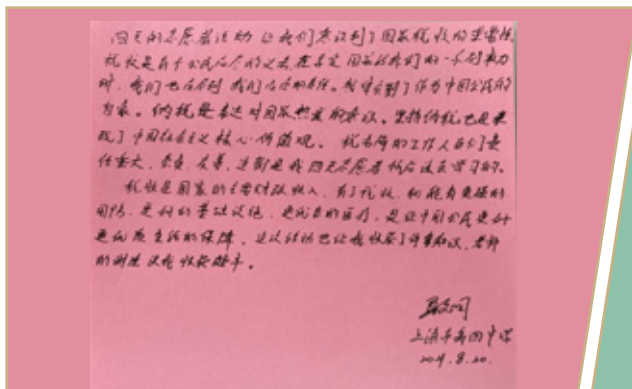 四天的志愿者活动 让我们意识到了国家税收的重要性
税收是每个公民应尽的义务,在享受国家给我们的一系列权力
时,我们也应尽到我们应尽的责任。我感受到了作为中国公民的
自豪。纳税是表达对国家热爱的表议。坚持纳税也是体
现了中国社会主义核心价值观。税务局的工作人员们责
任重大,负责,友善,这都是我们志愿者们应该去学习的。
税收是国家的主要财政收入,有了税收,就能有更强的
国防,更好的基础设施,更优良的医疗,是让中国公民更好
更优质生活的保障。这次活动也让我收获了许多知识,老师
的制度 让我收获颇丰。
上海市 中学
8.20.